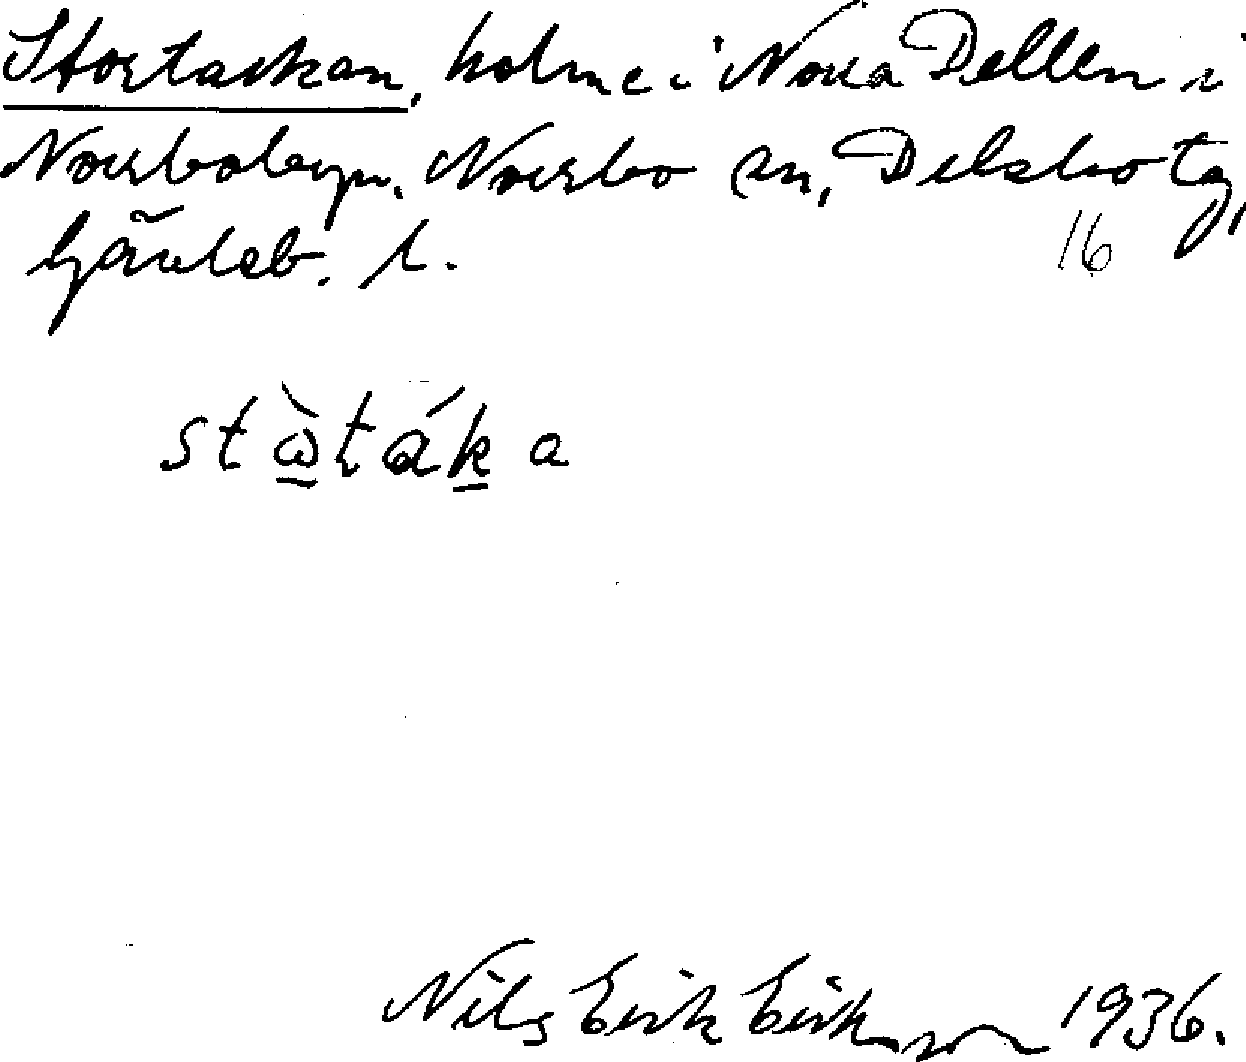 Stortaskan, holme i Norra Dellen i
Norrbobyn, Norrbo sn, Delsbo tg,
Gävleb. l.
16
stὼtáka
Nils Erik Eriksson 1936.